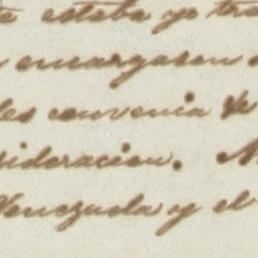 e estaba yo tra
encargaron
les convenia
sideracion. 
Venezuela y el